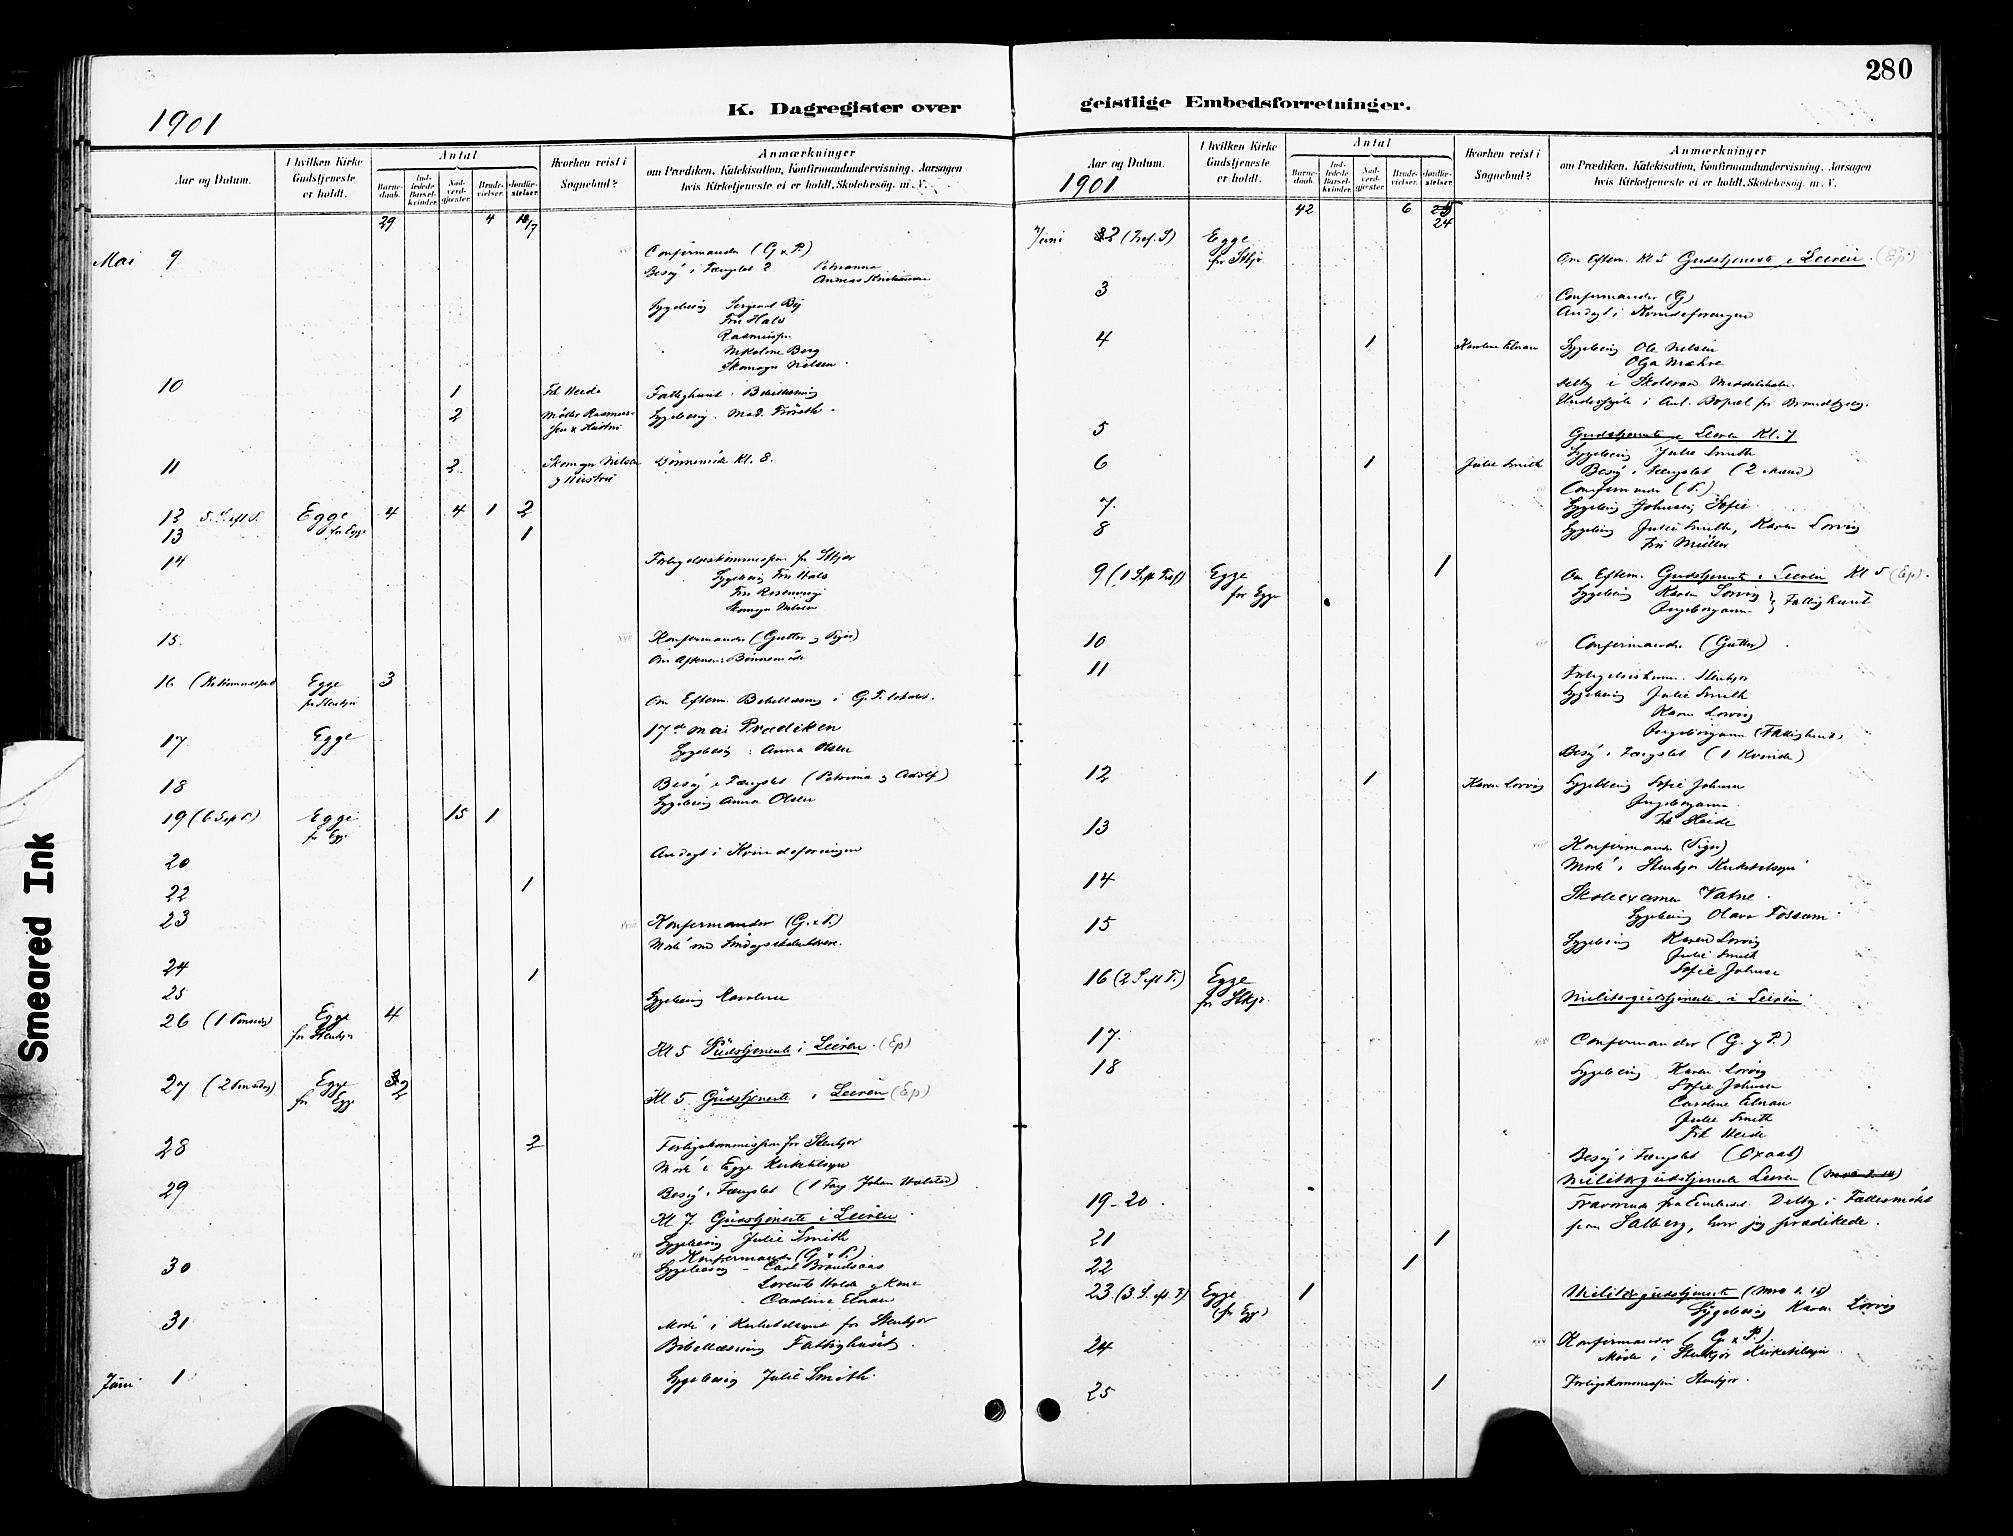 280
1901
K. Dagregister over
geistlige Embedsforretninger.
Smeared Ink
Aar og Datum.
I hvilken Kirke Gudstjeneste er holdt.
Antal
Barnedaab.
Indledede Barselkvinder.
Nadverdgjæster.
Brudevielser.
Jordfæstelser.
Hvorhen reist i Sognebud?
Anmærkninger
om Prædiken, Katekisation, Konfirmandundervisning, Aarsagen
hvis Kirketjeneste ei er holdt, Skolebesøg. m. V.
29 4
Mai 9 Confirmander (G & P.)
Besøg i Fængslet 2 Petrianna
Sygebesøg Sergeant
Fru Hals
Rasmussen
Nikoline Berg
Skomgr Nielsen
10 1 Frk Heide Fattighuset. Bibellæsning
2 Møller Rasmussen & Hustru Sygebesøg. Mad.
11 2 Skomgr Nilsen og Hustru Bønnemøde Kl. 8.
12 5. S. eft P. Egge for Egge 4 4 1 2
13 1
14 Forligelseskommission for Stkjær
Sygebesøg Fru Hals
Fru
Skomgr Nilsen
15. Konfirmander (Gutter og Piger)
Om Aftenen Bønnemøde
16 Egge for Stenkjær 3 Om Efterm. Bibellæsning i G. T. lokalet.
17 Egge 17de mai Prædiken
Sygebesøg: Anna Olsen
18 Besøg i Fængslet (Petrina og Adolf)
Sygebesøg Anna Olsen
19 (6 S e P.) Egge for Egge 15 1
20 Andagt i Kvindeforeningen
22 1
23 Konfirmander (G. & P.)
Møde med Søndagsskolelærere.
24 1
25 Sygebesøg Karoline
26 (1 Pinsedag) Egge for Stenkjær 4
Kl 5 Gudstjeneste i Leiren. (Ep)
27 (2 Pinsedag) Egge for Egge 2
Kl 5 Gudstjeneste i Leiren (Ep)
28 2 Forligskommission for Stenkjær
Møde i Egge Kirketilsyn
29 Besøg i Fængslet (1 Fang Johan)
Kl 7. Gudstjeneste i Leiren.
Sygebesøg Julie Smith
Konfirmander (G & P.)
30 Sygebesøg – Carl Brandsaas
Lorents Holde og Kone
Caroline Elnan
31 Møde i Kirketilsynet for Stenkjær
Bibellæsning Fattighuset.
Juni 1 Sygebesøg Julie Smith.
Aar og Datum.
1901
I hvilken Kirke Gudstjeneste er holdt.
Antal
Barnedaab.
Indledede Barselkvinder.
Nadverdgjæster.
Brudevielser.
Jordfæstelser.
Hvorhen reist i Sognebud?
Anmærkninger
om Prædiken, Katekisation, Konfirmandundervisning, Aarsagen
hvis Kirketjeneste ei er holdt, Skolebesøg. m. V.
42 6 24
Juni 2 (Tref. S) Egge for Stkjr Om Efterm. Kl 5 Gudstjeneste i Leiren. (Ep)
3 Confirmander (G)
Andagt i Kvindeforeningen
4 1 Karoline Elnan Sygebesøg Ole Nilsen
Olga Mæhre
5 Gudstjeneste i Leiren Kl. 7
Sygebesøg Julie Smith
6 1 Julie Smith Besøg i Fængslet (2 Mænd)
Confirmander (P.)
7. Sygebesøg Johnsen, Sofie
8 Sygebesøg Julie Smith, Karen Lorvig
Fru Müller
9 (1 S. eft. Tref) Egge for Egge 1 Om Efterm. Gudstjeneste i Leiren Kl 5 (Ep).
Sygebesøg Karen Lorvig
Ingeborganna } Fattighuset
10 Confirmander (Gutter)
11 Forligelseskomm. Stenkjær
Sygebesøg Julie Smith
Karen Lorvig
Ingeborganna (Fattighuset)
Besøg i Fængslet (1 Kvinde)
12 1 Karen Lorvig Sygebesøg Sofie Johnsen
Ingeborganna
Frk Heide
13 Konfirmander (Piger)
Møde i Stenkjær Kirketilsyn
14 Skoleexamen Vatne.
Sygebesøg Olava Fossum
15 Sygebesøg Karen Lorvig
Julie Smith
Sofie Johnsen
16 (2 S. eft T.) Egge for Stkjr. Militærgudstjeneste i Leiren
17. Confirmander (G. og P.)
18 Sygebesøg Karen Lorvig
Sofie Johnsen
Caroline Elnan
Julie Smith
Frk Heide
Besøg i Fængslet (Oxaas)
Militærgudstjeneste Leiren
19–20 Fraværende fra Embedet. Deltog i Fællesmødet
paa Salberg, hvor jeg prædikede.
21 1
22 1
23. (3. S. eft. T) Egge (for Egge) 1 Militærgudstjeneste
Sygebesøg Karen Lorvig
24 Konfirmander (G. & P.)
Møde i Stenkjær Kirketilsyn
25 1 Forligskommission Stenkjær.